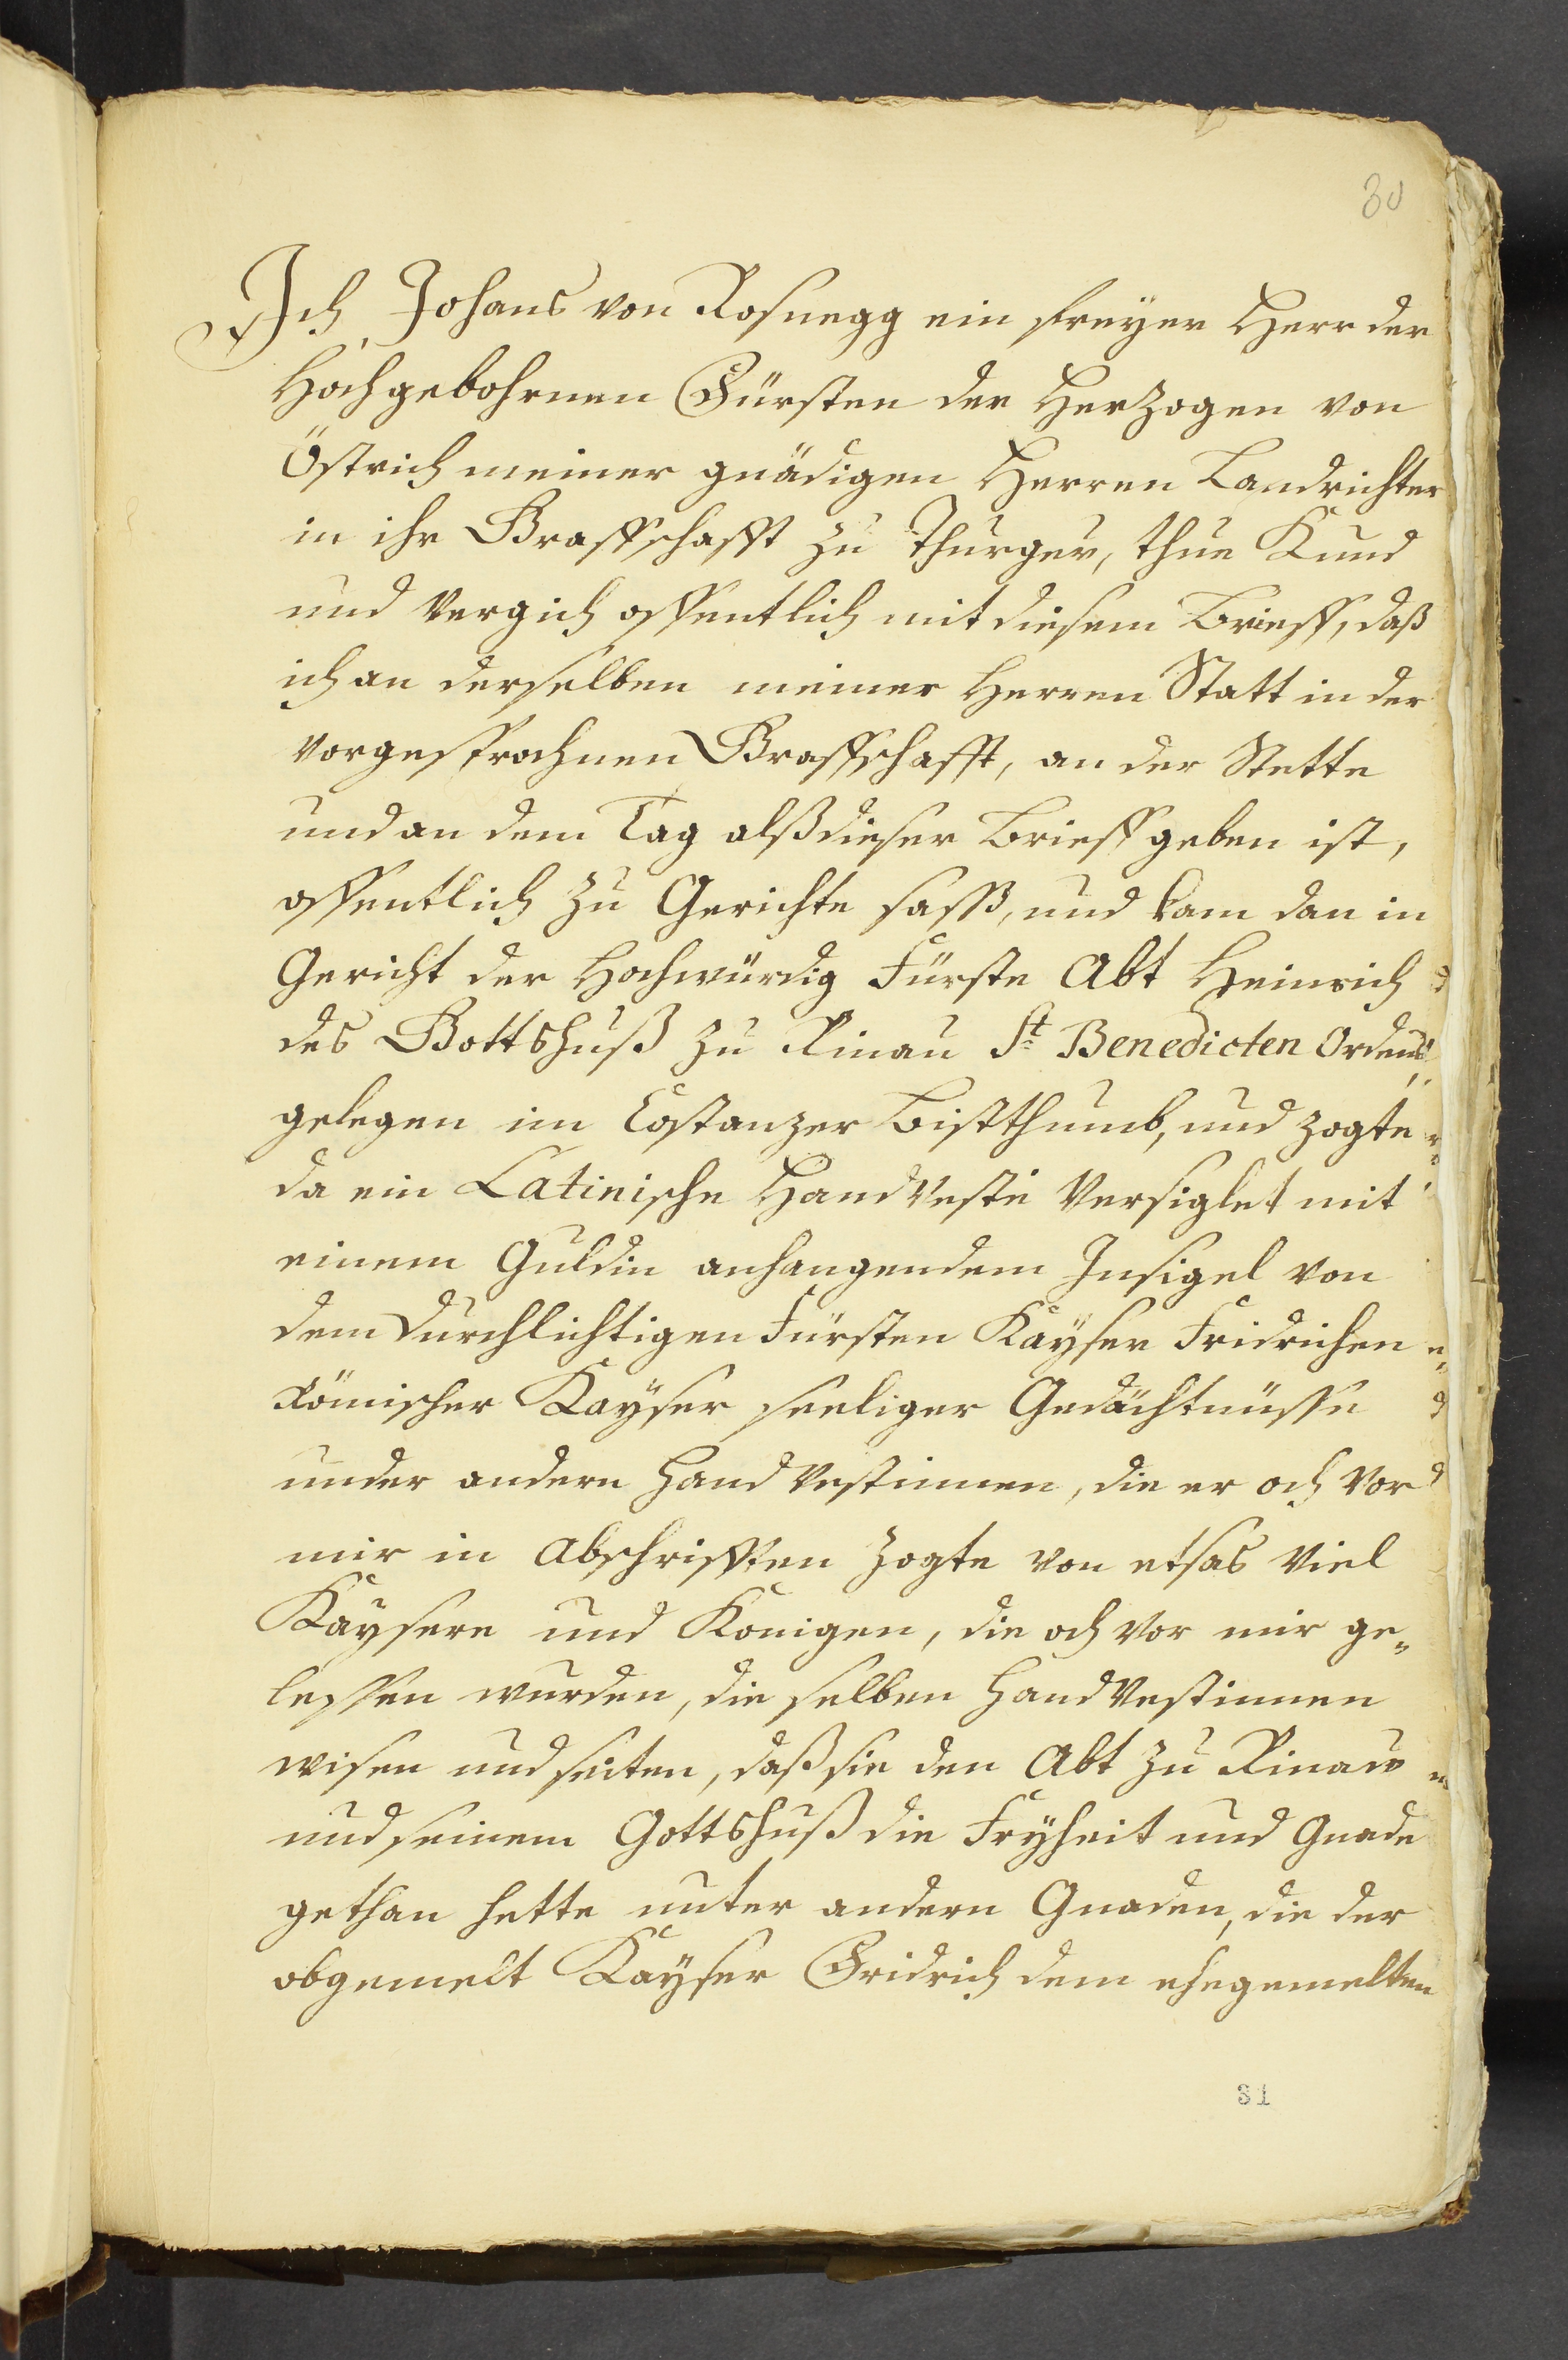 30
Ich Johans von Rosnegg ein freyer Herr der
Hochgebohrnen Fürsten der Herzogen von
Östrich meiner gnädigen Herren Landrichter
in ihr Graffschafft zu Thurgeu, thue Kund
und Vergich offentlich mit diesem Brieff, daß
ich an derselben meiner Herren Statt in der
vorgesprochnen Graffschafft, an der Stette
und an dem Tag alß dieser Brieff geben ist,
offentlich zu Gerichte sasß, und kam dan in
Gericht der Hochwürdig Fürste Abt Heinrich
des Gottshuß zu Rinau St Benedicten Ordens
gelegen im Costanzer Bistthumb, und zogte
da ein Latinische HandVeste Versiglet mit
einem Guldin anhangendem Insigel von
dem durchlichtigen Fürsten Kayser Fridrichen
Römischer Kayser seeliger Gedächtnüsse
under andern Hand Vestinnen, die er och Vor
mir in Abschrifften zogte von etwas Viel
Kaysern und Königen, die och Vor mir ge„
lessen wurden, die selben HandVestinnen
wisen und seiten, daß sie den Abt zu Rinau
und seinem Gottshuß die Fryheit und Gnade
gethan hette unter andern Gnaden, die der
obgemelt Kayser Fridrich dem ehegemelten
31